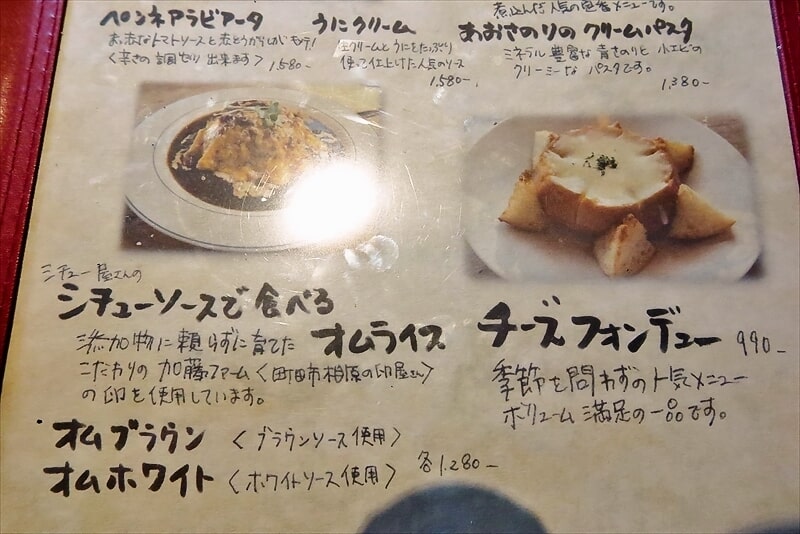 煮込んだ人気の定番メニューです。
ペンネアラビアータ
お馴みなトマトソースと赤とうがらしがもう!
〈辛さの調切り出来ます〉 1,580-
うにクリーム
生クリームとうにをたっぷり
使って仕上げた人気のソース
1,580-
あおさのりのクリームパスタ
ミネラル豊富な青さのりと小エビの
クリーミーなパスタです。
1,380-
シチュー屋さんの
シチューソースで食べる
オムライス
添加物に頼らずに育てた
こだわりの加藤ファーム〈町田市相原の卵屋さん〉
の卵を使用しています。
オムブラウン〈ブラウンソース使用〉
オムホワイト〈ホワイトソース使用〉 各1.280-
チーズフォンデュー 990-
季節を問わずの人気メニュー
ボリューム満足の一品です。